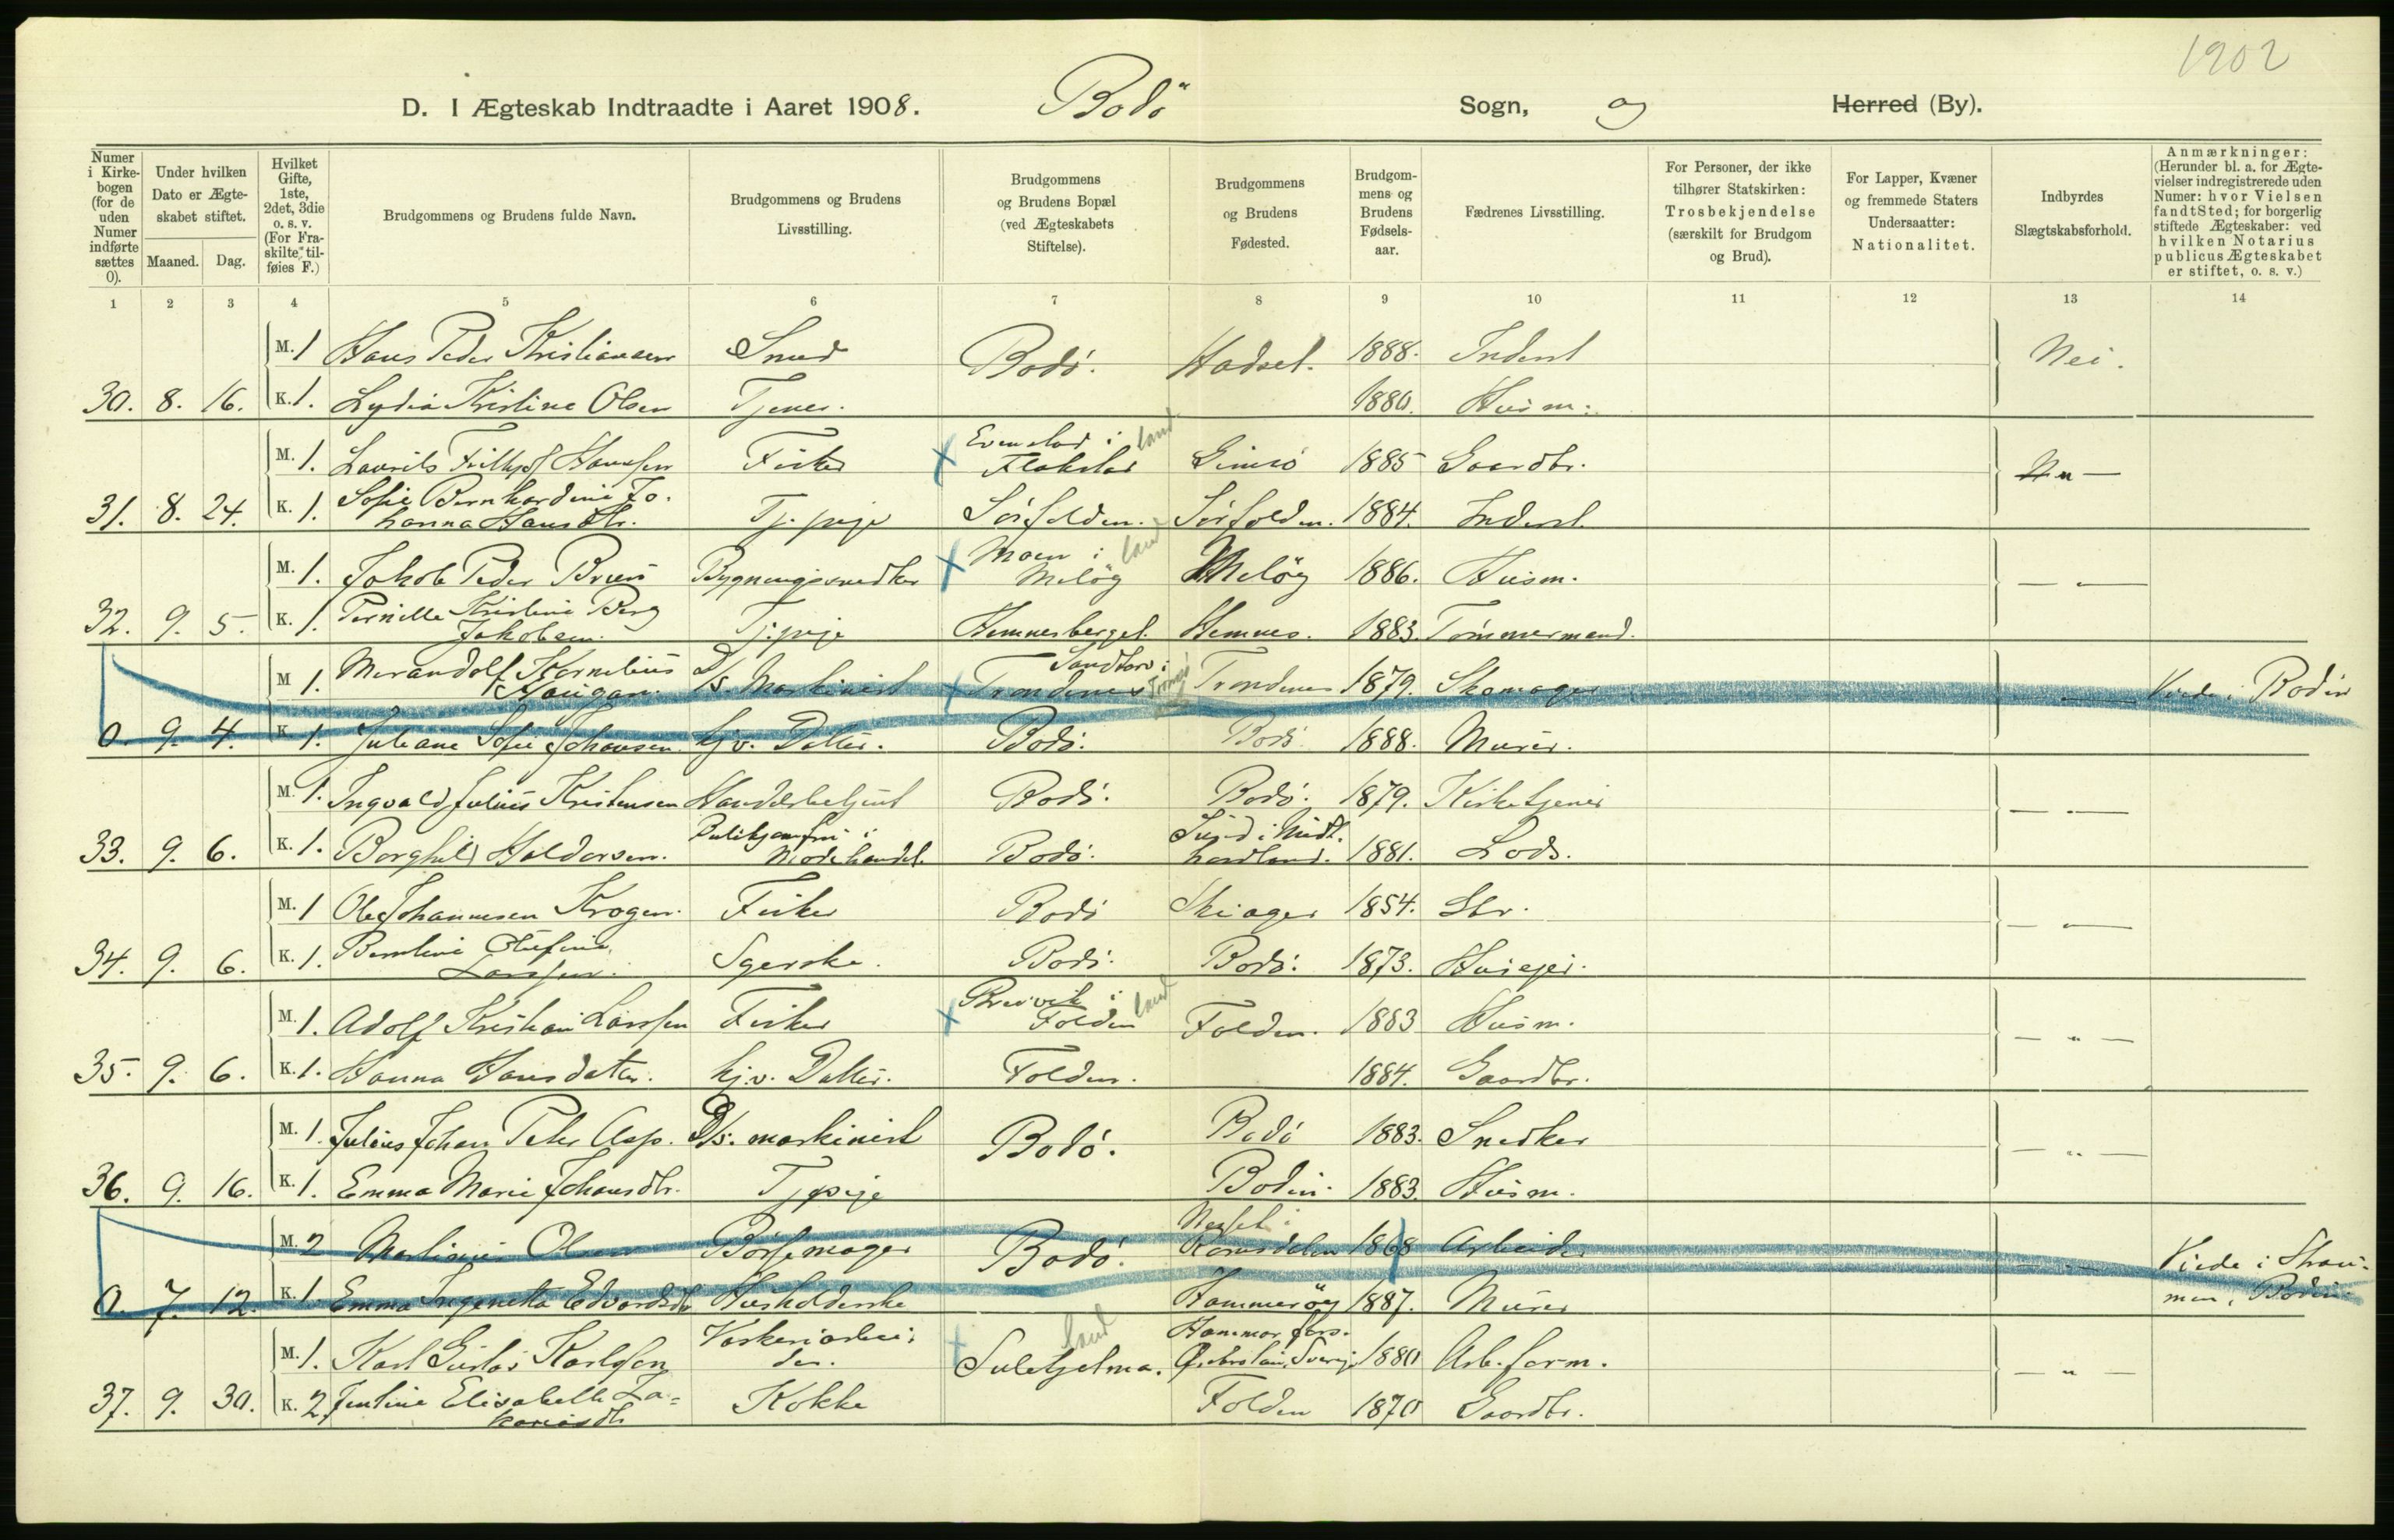 1202
D. I Ægteskab Indtraadte i Aaret 1908. Bodö Sogn, og Herred (By).
Numer i Kirkebogen (for de uden Numer indførte sættes 0).
Under hvilken Dato er Ægteskabet stiftet.
Maaned. Dag.
Hvilket Gifte, 1ste, 2det, 3die o. s. v. (For Fraskilte tilføies F.)
Brudgommens og Brudens fulde Navn.
Brudgommens og Brudens Livsstilling.
Brudgommens og Brudens Bopæl (ved Ægteskabets Stiftelse).
Brudgommens og Brudens Fødested.
Brudgommens og Brudens Fødselsaar.
Fædrenes Livsstilling.
For Personer, der ikke tilhører Statskirken: Trosbekjendelse (særskilt for Brudgom og Brud).
For Lapper, Kvæner og fremmede Staters Undersaatter: Nationalitet.
Indbyrdes Slægtskabsforhold.
Anmærkninger: (Herunder bl. a. for Ægtevielser indregistrerede uden Numer: hvor Vielsen fandt Sted; for borgerlig stiftede Ægteskaber: ved hvilken Notarius publicus Ægteskabet er stiftet, o. s. v.)
1 2 3 4 5 6 7 8 9 10 11 12 13 14
M. 1 Hans Peder Kristiansen Smed Bodö. Hadsel. 1888. Inderst Nei.
30. 8. 16. K. 1. Lydia Kristine Olsen Tjener. 1880. Husm.
M. 1. Laurits Frithjof Hanssen Fisker Evenstad i Flakstad land Gimsö 1885 Gaardbr. — " —
31. 8. 24. K. 1. Sofie Bernhardine Johanna Hansdtr. Tj. pige Sörfolden. Sörfolden. 1884. Inderst
M. 1. Jakob Peder Bruun Bygningssnedker Moen i Melöy land Melöy 1886. Husm. — " —
32. 9. 5. K. 1. Pernille Kristine Berg Jakobsen. Tj. pige Hemnesberget. Hemnes. 1883. Tömmermand.
M 1. Kornelius Haugan. D/s. Maskinist Sandtorv i Trondenes Trondenes 1879. Skomager — " — Viede i Bodin
0. 9. 4. K 1. Juliane Sofie Johansen. hjv. Datter. Bodö. Bodö 1888. Murer.
M. 1. Ingvald Julius Kristensen Handelsbetjent Bodö. Bodö. 1879. Kirketjener — " —
33. 9. 6. K. 1. Borghild Haldorsen. Butikjomfru i Modehandel. Bodö. i Nordland. 1881. Lods.
M. 1 Ole Johannesen Krogen. Fisker Bodö Skiager 1854. Gbr. — " —
34. 9. 6. K. 1. Olufine Larssen. Syerske. Bodö. Bodö. 1873. Husejer.
M. 1. Adolf Kristian Larssen Fisker Brevvik i Folden land Folden. 1883 Husm. — " —
35. 9. 6. K. 1. Hanna Hansdatter. hj.v. Datter. Folden. 1884. Gaardbr.
M. 1. Julius Johan Peter Asp. D/s. maskinist Bodö. Bodö 1883. Snedker — " —
36. 9. 16. K. 1. Emma Marie Johansdtr. Tj. pige Bodin. 1883. Husm.
M. 2 Martinius Olsen Börsemager Bodö. Nesset i Romsdalen 1868 Arbeider — " — Viede i Straumen, Bodin.
0. 7. 12. K. 1 Emma Ingenetta Edvardsdtr Husholderske Hammeröy 1887. Murer
M. 1. Karl Gustav Karlssen Vaskeriarbeider. Sulitjelma. land Hammarfors. Sverige 1880 Arb. form. — " —
37. 9. 30. K. 2. Jentine Elisabeth Zakariasdtr Kokke Folden 1870 Gaardbr.